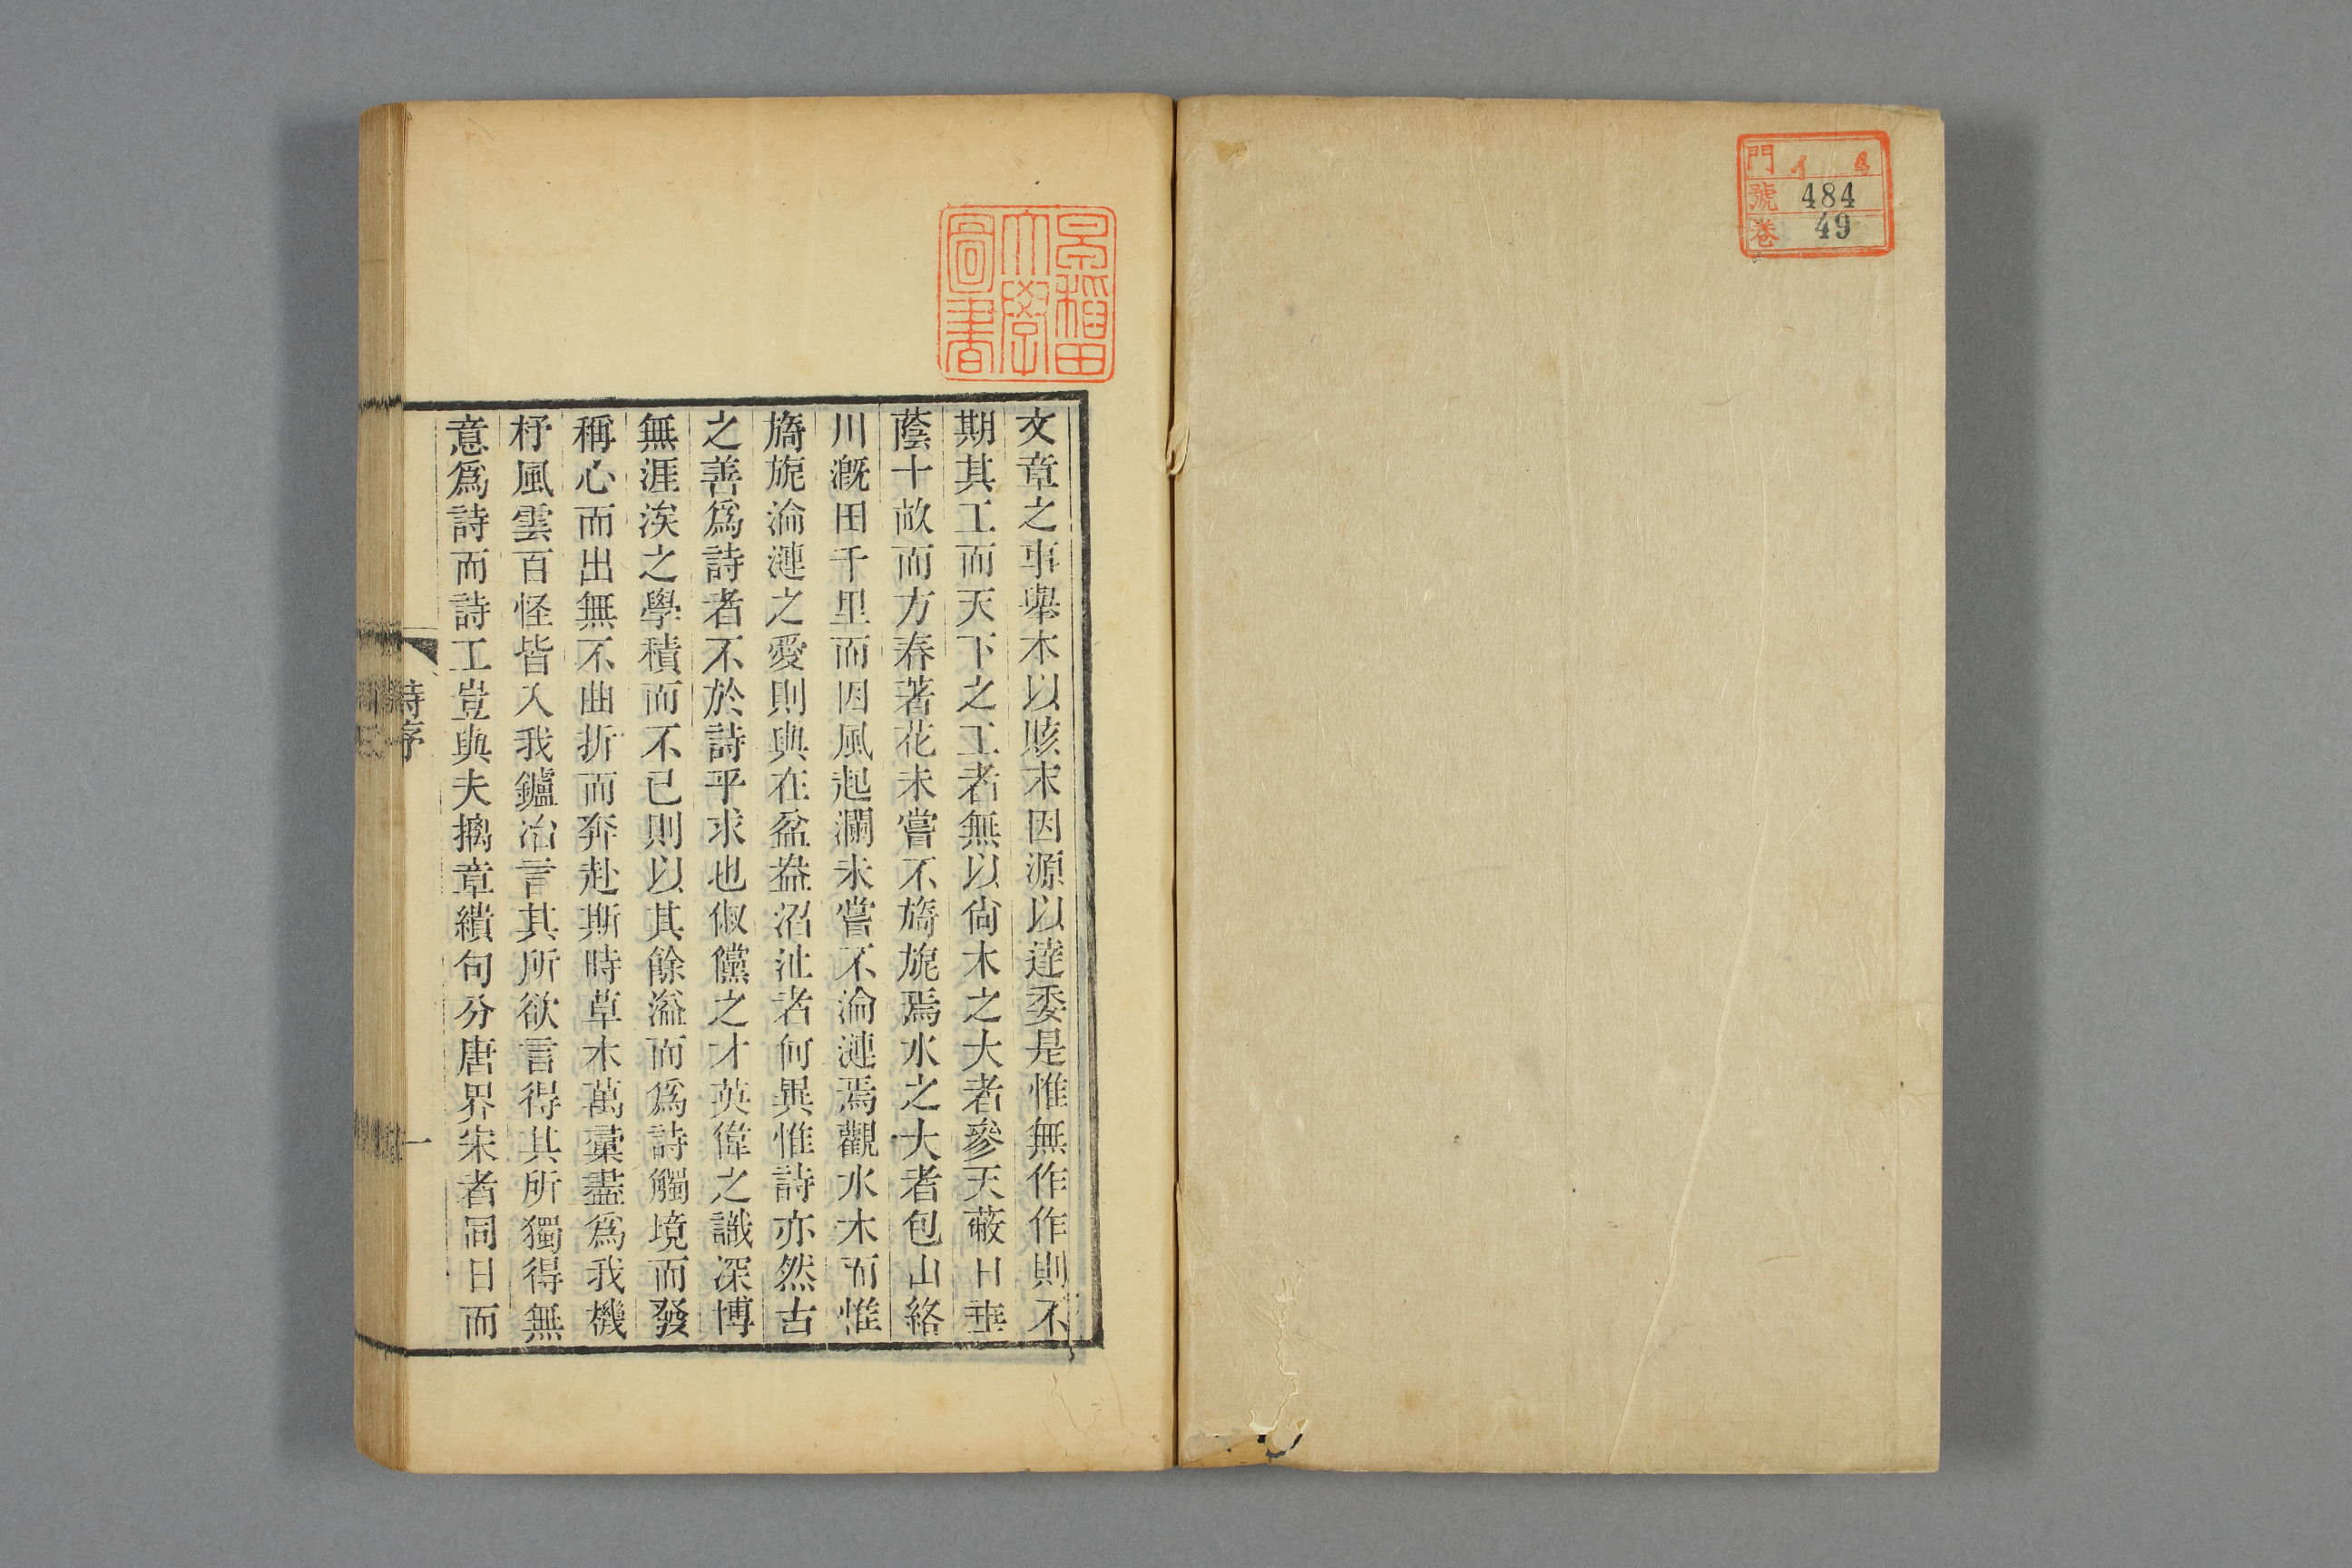 門 イ 4
號 484
卷 49
早稲田
大學
圖書
文章之事舉本以賅末因源以達委是惟無作作則不
期其工而天下之工者無以尙木之大者參天蔽日垂
蔭十畝而方春著花未嘗不旖旎焉水之大者包山絡
川漑田千里而因風起瀾未嘗不淪漣焉觀水木而惟
旖旎淪漣之愛則與在盆盎沼沚者何異惟詩亦然古
之善爲詩者不於詩乎求也俶儻之才英偉之識深博
無涯涘之學積而不已則以其餘溢而爲詩觸境而發
稱心而出無不曲折而奔赴斯時草木萬彙盡爲我機
杼風雲百怪皆入我鑪冶言其所欲言得其所獨得無
意爲詩而詩工豈與夫摛章繢句分唐界宋者同日而
詩序
一